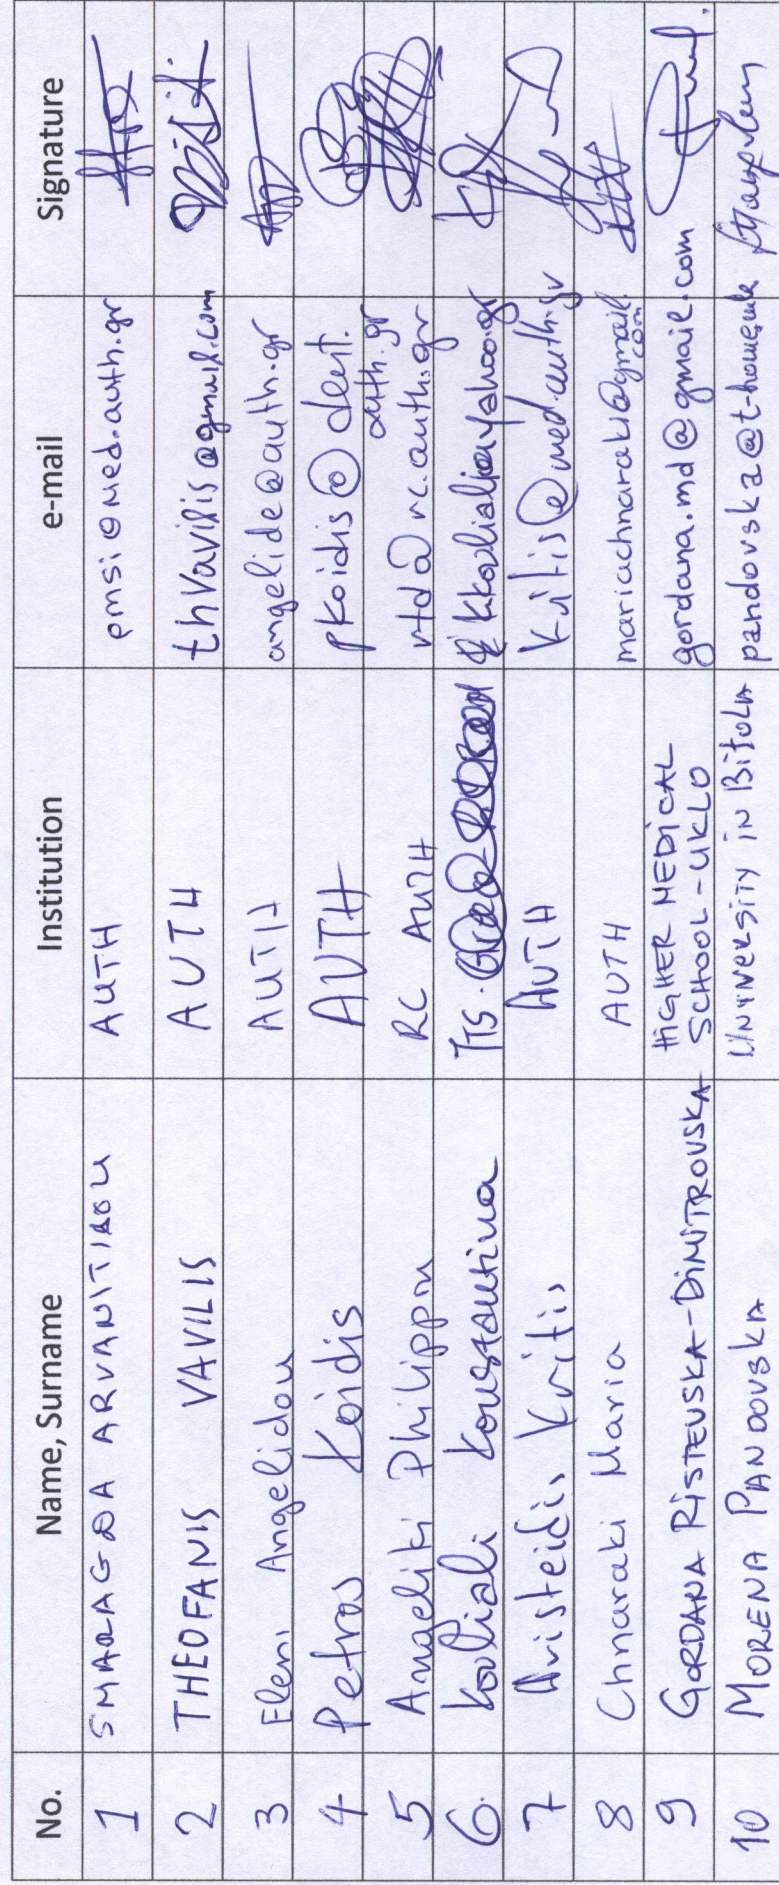 No. Name, Surname Institution e-mail Signature
1 SMARAGDA ARVANITIDOU AUTH emsi@med.auth.gr
2 THEOFANIS VAVILIS AUTH thvavilis@gmail.com
3 Eleni Angelidou AUTH angelide@auth.gr
4 Petros Koidis AUTH pkoidis@dent.
auth.gr
5 Angeliki Philippou RC AUTH vtd@rc.auth.gr
6. Kouliali Koustantina ITS
7 Aristeidis Kritis AUTH kritis@med.auth.gr
8 Chnaraki Maria AUTH mariachnaraki@gmail.
com
9 GORDANA RISTEVSKA-DIMITROVSKA HIGHER MEDICAL
SCHOOL-UKLO gordana.md@gmail.com
10 MORENA PANDOVSKA UNIVERSITY in Bitola pandovska@t-home.mk